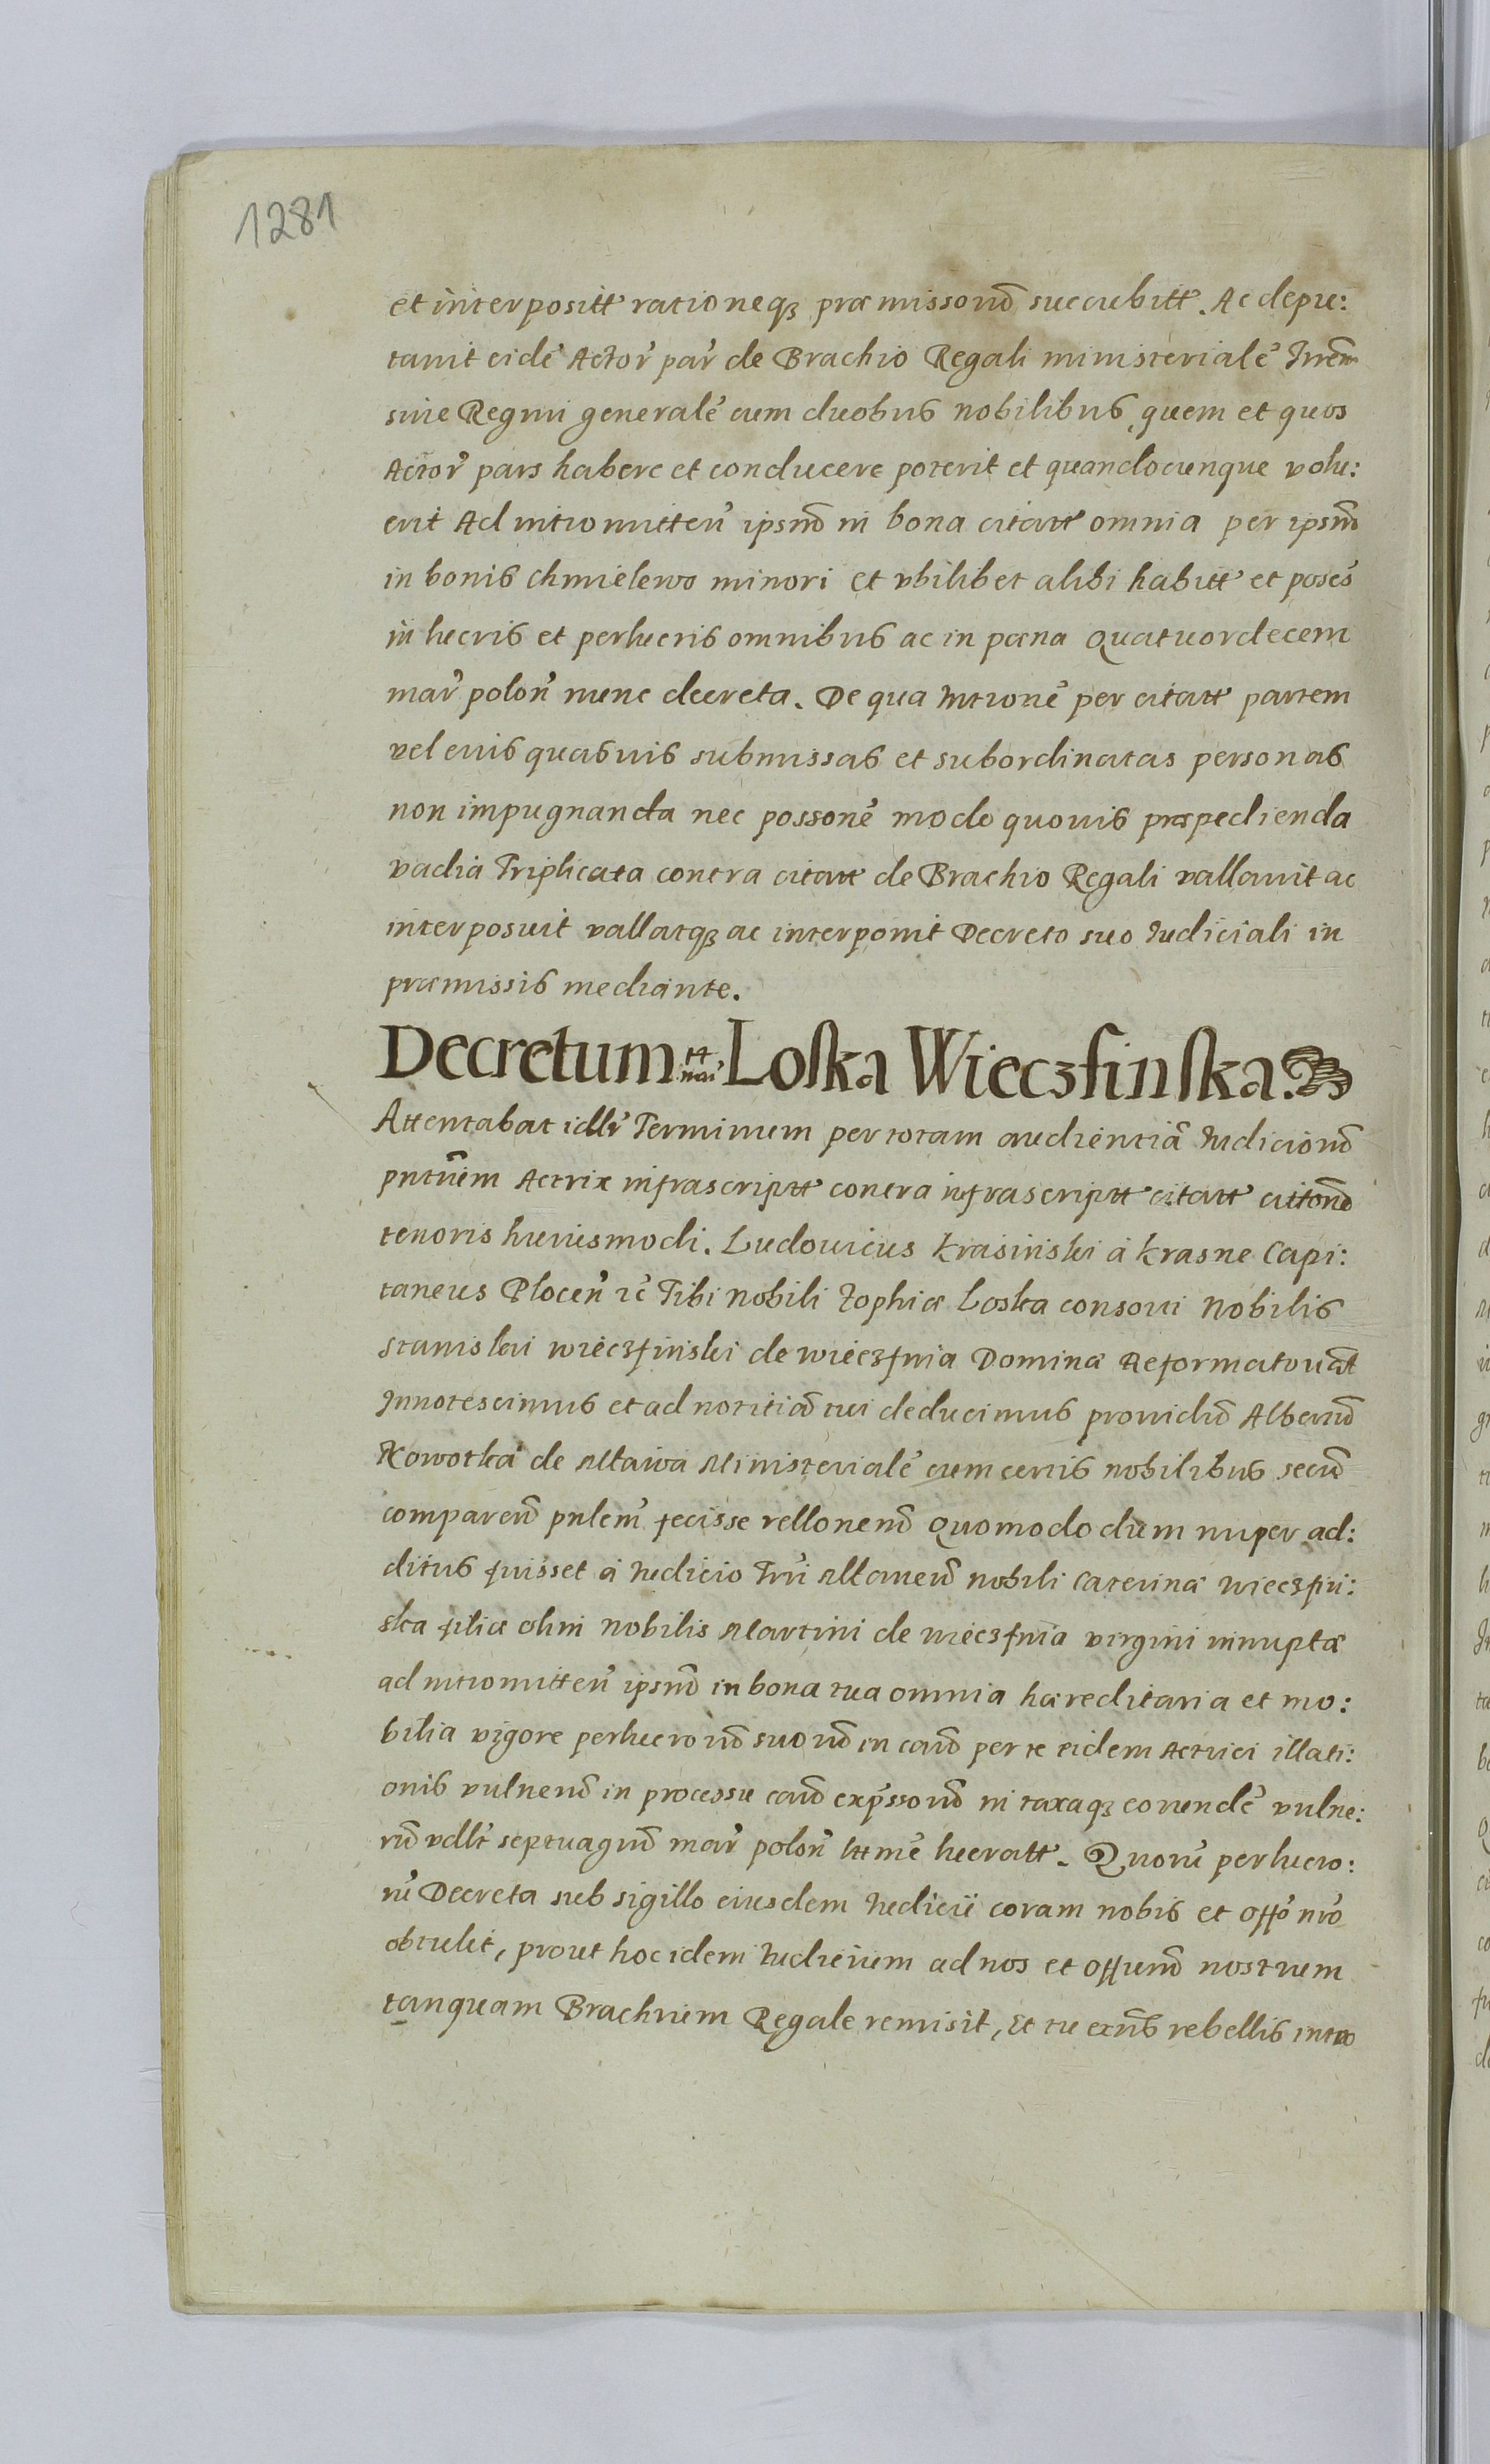 1281
et interpositt rationeq3 præmissorũ succubitt. Ac depu:
tauit eidẽ Actor̃ par̃ de Brachio Regali ministerialẽ Trẽm
siue Regni generalẽ cum duobus nobilibus quem et quos
Actor̃ pars habere et conducere poterit et quandocunque volu:
erit Ad intromitteñ ipsum̃ in bona citatt omnia per ipsum̃
in bonis Chmielewo minori et vbilibet alibi habitt et poses̃
in lucris et perlucris omnibus ac in pæna Quatuordecem
mar̃ poloñ nunc decreta. De qua Intronẽ per citatt partem
vel euis quasuis submissas et subordinatas personas
non impugnanda nec possonẽ modo quouis præpedienda
vadia Triplicata contra citatt de Brachio Regali vallauit ac
interposuit vallatq3 ac interponit Decreto suo Iudiciali in
præmissis mediante.
Decretum Loska Wieczfinska.
Attentabat idlr̃ Terminum per totam audientiã Iudiciorũ
pntium Actrix infrascriptt contra infrascriptt citatt citonẽ
tenoris huiusmodi. Ludouicus Krasinski à Krasne Capi:
taneus Ploceñ ꝛc̃ Tibi nobili Zophiæ Loska consorti Nobilis
Stanislai wieczfinski de wieczfnia Dominæ Reformatoriæ
Innotescimus et ad notitiã tui deducimus prouidũ Albertũ
Kowotka de Mlawa Ministerialẽ cum certis nobilibus secũ
compareñ pnlem̃ fecisse rellonem̃ Quomodo dum nuper ad:
ditus fuisset à Iudicio Trri Mlaueñ nobili Caterinæ wieczfin:
ska filiæ olim nobilis Martini de wieczfnia virgini innuptæ
ad intromitteñ ipsum̃ in bona tua omnia hæreditaria et mo:
bilia vigore perlucrorũ suorũ in cauã per te eidem Actrici illati:
onis vulnerũ in processu cauã exp̃ssorũ in taxaq3 eorundẽ vulne:
rũ vdlt̃ septuagin̄ mar̃ poloñ lttmẽ lucratt. Quorũ perlucro:
rũ Decreta sub sigillo eiusdem Iudicii coram nobis et offõ nrõ
obtulit, prout hoc idem Iudicium ad nos et offium̃ nostrum
tanquam Brachium Regale remisit, Et tu exñs rebellis intro